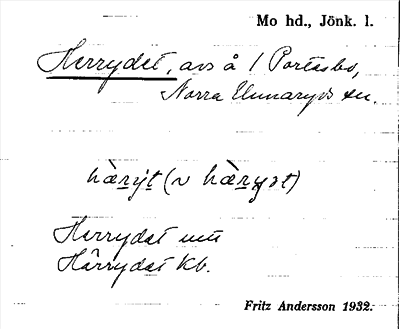 Mo hd., Jönk. l.
Herrydet, avs å / Portarbo,
Norra Unnaryds sn.
hæ̀rýt (~ hæ̀ryət)
Herrydet uu
Härrydet Kb.
Fritz Andersson 1932.